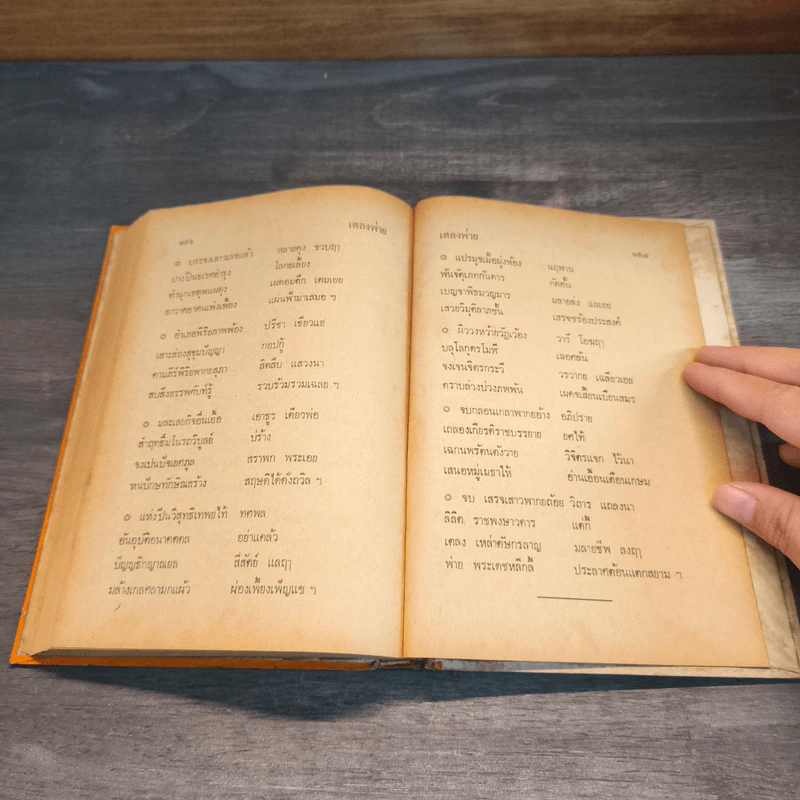 ๑๕๖
เตลงพ่าย
๏ บรรจงเสาวเลขแล้ว หลายคุง ขวบฤๅ
ปางปิ่นธเรศบำรุง โลกยเลี้ยง
ทำนุกเชตุพนผดุง เผดยมตึก เตมเอย
อาวาศอาตมเพ่งเพี้ยง แผ่นฟ้ามาเสมอ ฯ
๏ อำเภอพิริยภาพพ้อง ปรีชา เชี่ยวแฮ
เสาะส่องสุขุมปัญญา กอปกู้
คามภีร์พิริยพากยสุภา สิตสืบ แสวงนา
สบสิ่งสรรพศัพท์รู้ รวบร้วมรวมเฉลย ฯ
๏ มละเลยกิจอื่นเอื้อ เอาธูร เดียวพ่อ
สำฤทธิมโนรถวิบูลย์ บ่ร้าง
จงเปนปัจเยศภูล สราพก พระเอย
หนปักษทักษิณสร้าง สฤษดิได้ดั่งถวิล ฯ
๏ แห่งปิ่นวิสุทธิเทพยไท้ ทศพล
อันอุบัติอนาคตดล อย่าแคล้ว
ปัญญธิกญาณยล สี่สัตย์ แลฤๅ
มล้างเกลศลามกแผ้ว ผ่องเพี้ยงเพ็ญแข ฯ
เตลงพ่าย
๑๕๗
๏ แปรมุขเมื้อมุ่งห้อง นฤพาน
พ้นจัตุเภทกันดาร กัดตั้น
เบญจาพิธมวญมาร มลายส่ง แลเอย
เสวยวิมุติลาภชั้น เสรจซร้องประสงค์
๏ ผิววงหว้ายวัฏเวี้ยง วารี โอฆฤๅ
บลุโลกุตรโมฬี เลอศล้น
จงเจนจิตรกระวี วรวากย เฉลียวเอย
ตราบล่วงบ่วงภพพ้น เผด็จเสี้ยนเบียนสมร
๏ จบกลอนเกลาพากยอ้าง อภิปราย
เถลองเกียรติราชบรรยาย ยศไท้
เฉกนพรัตนดังวาย วิจิตรแจก ไว้นา
เสนอหมู่เมธาให้ อ่านเอื้อนเตือนเกษม
๏ จบ เสรจเสาวพากยถ้อย วิถาร แถลงนา
ลิลิต ราชพงษาวดาร แต่กี้
เตลง เหล่าดัษกรลาญ มลายชีพ ลงฤๅ
พ่าย พระเดชหลีกลี้ ประลาศต้อนแตกสยาม ฯ